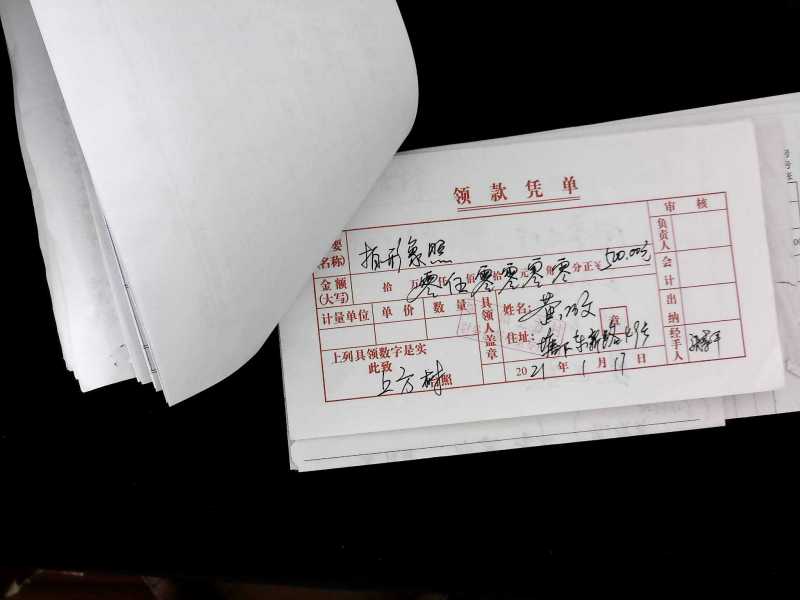 领款凭单
审 核
要
名称)
拍形象照
负责人
金额
(大写)
拾 万 仟 佰 拾 元 角 分正¥500.00元
零伍零零零零
会计
计量单位 单价 数量
具领人盖章
姓名:黄
章
住址:
49号
出纳
上列具领数字是实
此致
照
2021年1月17日
经手人